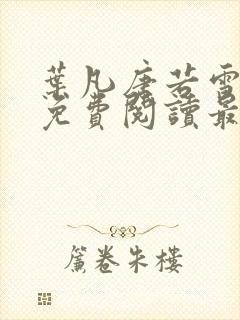 葉凡唐若雪
免費閱讀最
簾卷朱樓